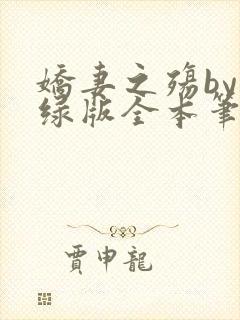 嬌妻之殤by
綠版全本筆
賈申龍